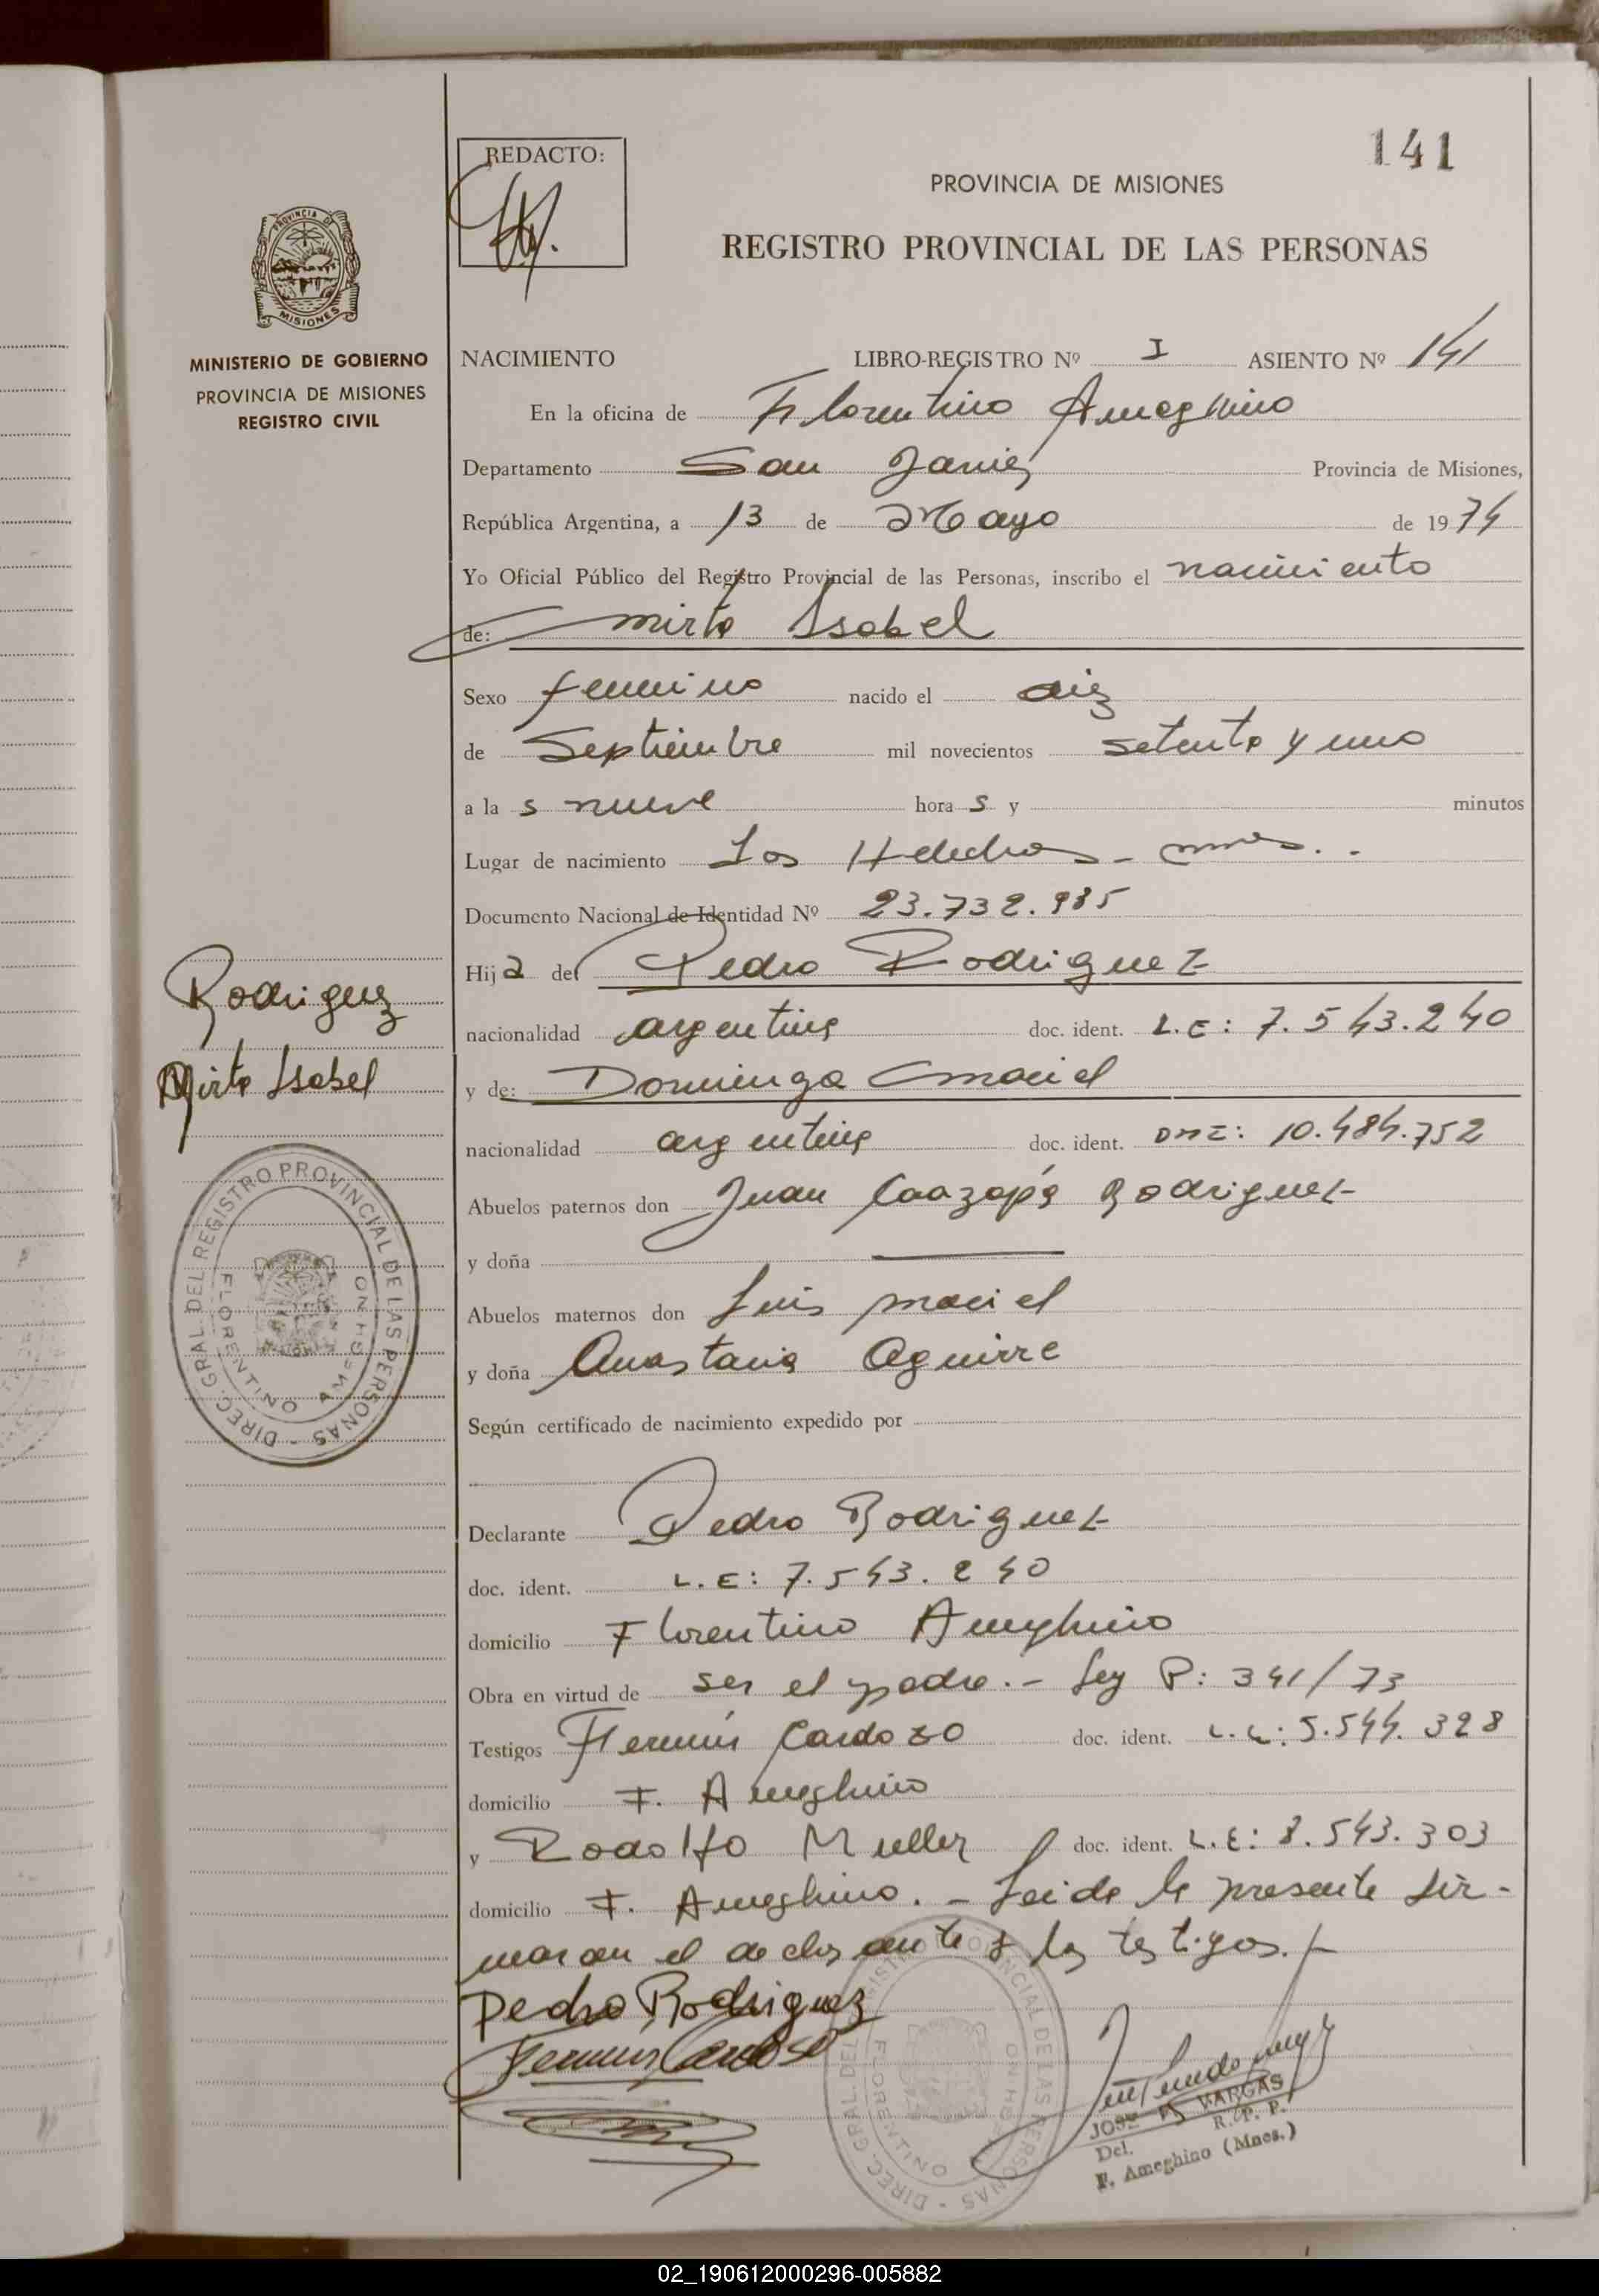 141
REDACTO:
PROVINCIA DE MISIONES
REGISTRO PROVINCIAL DE LAS PERSONAS
PROVINCIA DE
MISIONES
MINISTERIO DE GOBIERNO
PROVINCIA DE MISIONES
REGISTRO CIVIL
NACIMIENTO LIBRO-REGISTRO Nº I ASIENTO Nº 141
En la oficina de Florentino Ameghino
Departamento San Javier Provincia de Misiones,
República Argentina, a 13 de Mayo de 1974
Yo Oficial Público del Registro Provincial de las Personas, inscribo el nacimiento
de: Mirta Isabel
Sexo femenino nacido el diez
de Septiembre mil novecientos setenta y uno
a las nueve horas y minutos
Lugar de nacimiento Los Helechos - Mnes.
Documento Nacional de Identidad Nº 23.732.985
Hija de Pedro Rodriguez
nacionalidad argentina doc. ident. L.E: 7.543.240
y de: Dominga Maciel
nacionalidad argentina doc. ident. DNI: 10.484.752
Abuelos paternos don Juan Caazapá Rodriguez
y doña
Abuelos maternos don Luis Maciel
y doña Anastacia Aguirre
Según certificado de nacimiento expedido por
Declarante Pedro Rodriguez
doc. ident. L.E: 7.543.240
domicilio Florentino Ameghino
Obra en virtud de ser el padre.- Ley P: 341/73
Testigos Fermín Cardozo doc. ident. 5.544.328
domicilio F. Ameghino
y Rodolfo Muller doc. ident. L.E: 8.543.303
domicilio F. Ameghino. - Leida la presente fir-
maron el declarante y los testigos.
Pedro Rodriguez
Fermin Cardoso
JOSE VARGAS
Del. R. P. P.
F. Ameghino (Mnes.)
Rodriguez
Mirta Isabel
DIREC. GRAL. DEL REGISTRO PROVINCIAL DE LAS PERSONAS -
FLORENTINO AMEGHINO
DIREC. GRAL. DEL REGISTRO PROVINCIAL DE LAS PERSONAS -
FLORENTINO
02_190612000296-005882